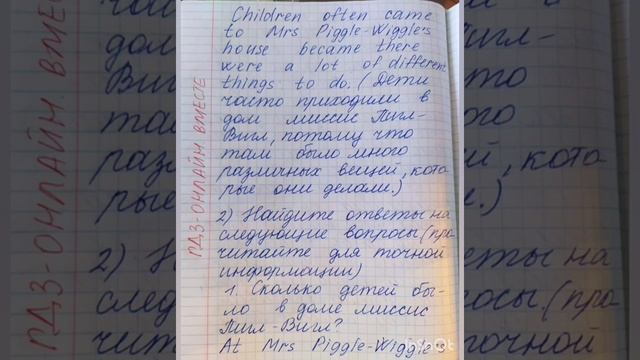 Children often came
to Mrs Piggle-Wiggle's
house became there
were a lot of different
things to do. (Дети
часто приходили в
дом миссис Пигл-
Вигл, потому что
там было много
различных вещей, кото
рые они делали.)
2) Найдите ответы на
следующие вопросы (про
читайте для точной
информации)
1. Сколько детей бы-
ло в доме миссис
Пигл-Вигл?
At Mrs Piggle-Wiggle
ГДЗ-ОНЛАЙН ВМЕСТЕ